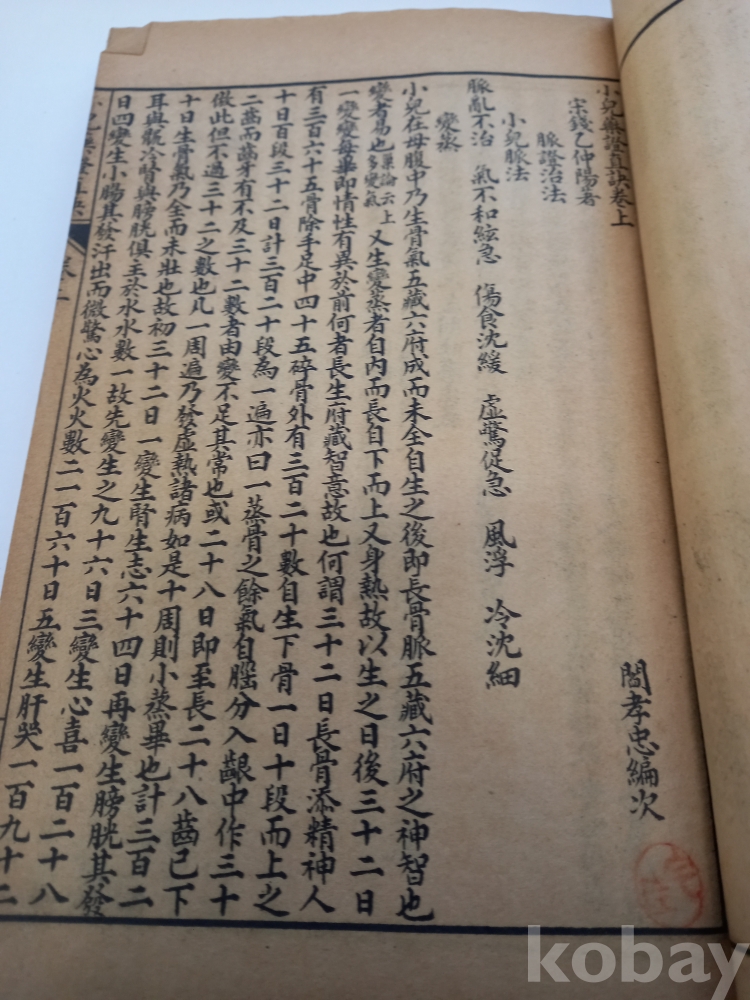 小兒藥證直訣卷上
宋錢乙仲陽著 閻孝忠編次
脈證治法
小兒脈法
脈亂不治 氣不和絃急 傷食沈緩 虛驚促急 風浮 冷沈細
變蒸
小兒在母腹中乃生骨氣五藏六府成而未全自生之後即長骨脈五藏六府之神智也
變者易也巢論云上多變氣又生變蒸者自內而長自下而上又身熱故以生之日後三十二日
一變變每畢即情性有異於前何者長生府藏智意故也何謂三十二日長骨添精神人
有三百六十五骨除手足中四十五碎骨外有三百二十數自生下骨一日十段而上之
十日百段三十二日計三百二十段為一遍亦曰一蒸骨之餘氣自腦分入齦中作三十
二齒而齒牙有不及三十二數者由變不足其常也或二十八日即至長二十八齒已下
倣此但不過三十二之數也凡一周遍乃發虛熱諸病如是十周則小蒸畢也計三百二
十日生骨氣乃全而未壯也故初三十二日一變生腎生志六十四日再變生膀胱其發
耳與骩冷腎與膀胱俱主於水水數一故先變生之九十六日三變生心喜一百二十八
日四變生小腸其發汗出而微驚心為火火數二一百六十日五變生肝哭一百九十二
小兒藥證直訣
kobay